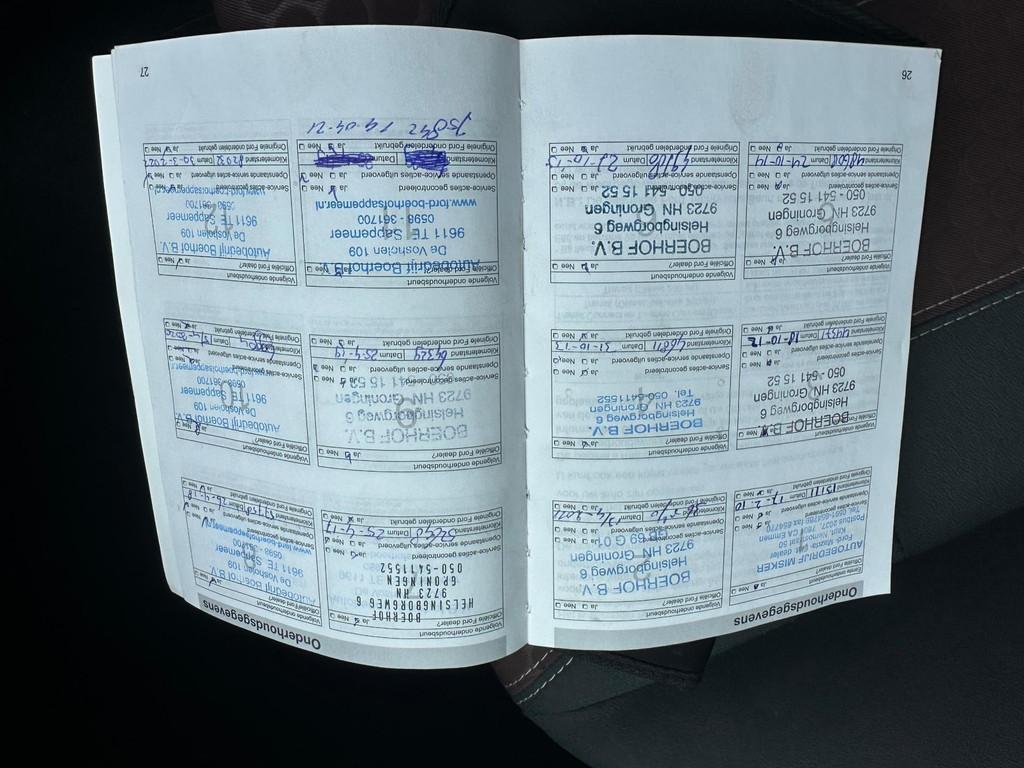 Onderhoudsgegevens
Eerste onderhoudsbeurt
Officiële Ford dealer?
Ja Nee
AUTOBEDRIJF MISKER
Ford dealer
Service-acties gecontroleerd
Ja Nee
Openstaande service-acties uitgevoerd
Ja Nee
Kilometerstand 15111 Datum 17-2-10
Originele Ford onderdelen gebruikt
Ja Nee
Volgende onderhoudsbeurt
Officiële Ford dealer?
Ja Nee
BOERHOF B.V.
Helsingborgweg 6
9723 HN Groningen
Service-acties gecontroleerd
Ja Nee
Openstaande service-acties uitgevoerd
Ja Nee
Kilometerstand Datum
Originele Ford onderdelen gebruikt
Ja Nee
Volgende onderhoudsbeurt
Officiële Ford dealer?
Ja Nee
BOERHOF B.V.
Helsingborgweg 6
9723 HN Groningen
050 - 541 15 52
Service-acties gecontroleerd
Ja Nee
Openstaande service-acties uitgevoerd
Ja Nee
Kilometerstand 44571 Datum 18-10-12
Originele Ford onderdelen gebruikt
Ja Nee
Volgende onderhoudsbeurt
Officiële Ford dealer?
Ja Nee
4
BOERHOF B.V.
Helsingborgweg 6
9723 HN Groningen
Tel. 050-5411552
Service-acties gecontroleerd
Ja Nee
Openstaande service-acties uitgevoerd
Ja Nee
Kilometerstand 46871 Datum 31-10-13
Originele Ford onderdelen gebruikt
Ja Nee
Volgende onderhoudsbeurt
Officiële Ford dealer?
Ja Nee
BOERHOF B.V.
Helsingborgweg 6
9723 HN Groningen
050 - 541 15 52
Service-acties gecontroleerd
Ja Nee
Openstaande service-acties uitgevoerd
Ja Nee
Kilometerstand 48608 Datum 24-10-14
Originele Ford onderdelen gebruikt
Ja Nee
Volgende onderhoudsbeurt
Officiële Ford dealer?
Ja Nee
6
BOERHOF B.V.
Helsingborgweg 6
9723 HN Groningen
050 - 541 15 52
Service-acties gecontroleerd
Ja Nee
Openstaande service-acties uitgevoerd
Ja Nee
Kilometerstand Datum
Originele Ford onderdelen gebruikt
Ja Nee
26
Onderhoudsgegevens
Volgende onderhoudsbeurt
Officiële Ford dealer?
Ja Nee
BOERHOF
HELSINGBORGWEG 6
9723 HN
GRONINGEN
050-5411552
Service-acties gecontroleerd
Ja Nee
Openstaande service-acties uitgevoerd
Ja Nee
Kilometerstand Datum 25-4-17
Originele Ford onderdelen gebruikt
Ja Nee
Volgende onderhoudsbeurt
Officiële Ford dealer?
Ja Nee
Autobedrijf Boerhof B.V.
De Vosholen 109
9611 TE Sappemeer
0598 - 361700
Service-acties gecontroleerd
Ja Nee
Openstaande service-acties uitgevoerd
Ja Nee
Kilometerstand Datum
Originele Ford onderdelen gebruikt
Ja Nee
Volgende onderhoudsbeurt
Officiële Ford dealer?
Ja Nee
9
BOERHOF B.V.
Helsingborgweg 6
9723 HN Groningen
050 - 541 15 52
Service-acties gecontroleerd
Ja Nee
Openstaande service-acties uitgevoerd
Ja Nee
Kilometerstand 64329 Datum 25-4-19
Originele Ford onderdelen gebruikt
Ja Nee
Volgende onderhoudsbeurt
Officiële Ford dealer?
Ja Nee
10
Autobedrijf Boerhof B.V.
De Vosholen 109
9611 TE Sappemeer
0598-361700
www.ford-boerhofsappemeer.nl
Service-acties gecontroleerd
Ja Nee
Openstaande service-acties uitgevoerd
Ja Nee
Kilometerstand Datum
Originele Ford onderdelen gebruikt
Ja Nee
Volgende onderhoudsbeurt
Officiële Ford dealer?
Ja Nee
Autobedrijf Boerhof B.V.
De Vosholen 109
9611 TE Sappemeer
0598 - 361700
www.ford-boerhofsappemeer.nl
Service-acties gecontroleerd
Ja Nee
Openstaande service-acties uitgevoerd
Ja Nee
Kilometerstand Datum
Originele Ford onderdelen gebruikt
Ja Nee
75842 14-04-21
Volgende onderhoudsbeurt
Officiële Ford dealer?
Ja Nee
12
Autobedrijf Boerhof B.V.
De Vosholen 109
9611 TE Sappemeer
0598 - 361700
www.ford-boerhofsappemeer.nl
Service-acties gecontroleerd
Ja Nee
Openstaande service-acties uitgevoerd
Ja Nee
Kilometerstand 82032 Datum 30-3-2022
Originele Ford onderdelen gebruikt
Ja Nee
27